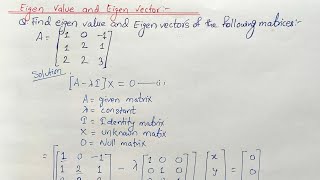 Eigen value and Eigen vector:-
Q. Find eigen value and Eigen vectors of the following matrices:-
A = [1 0 -1
1 2 1
2 2 3]
Solution
[A - λI] X = 0 —(i)
A = given matrix
λ = constant
I = Identity matrix
X = unknown matrix
O = Null matrix
= [ [1 0 -1 - λ [1 0 0 [x = [0
1 2 1 0 1 0 y 0